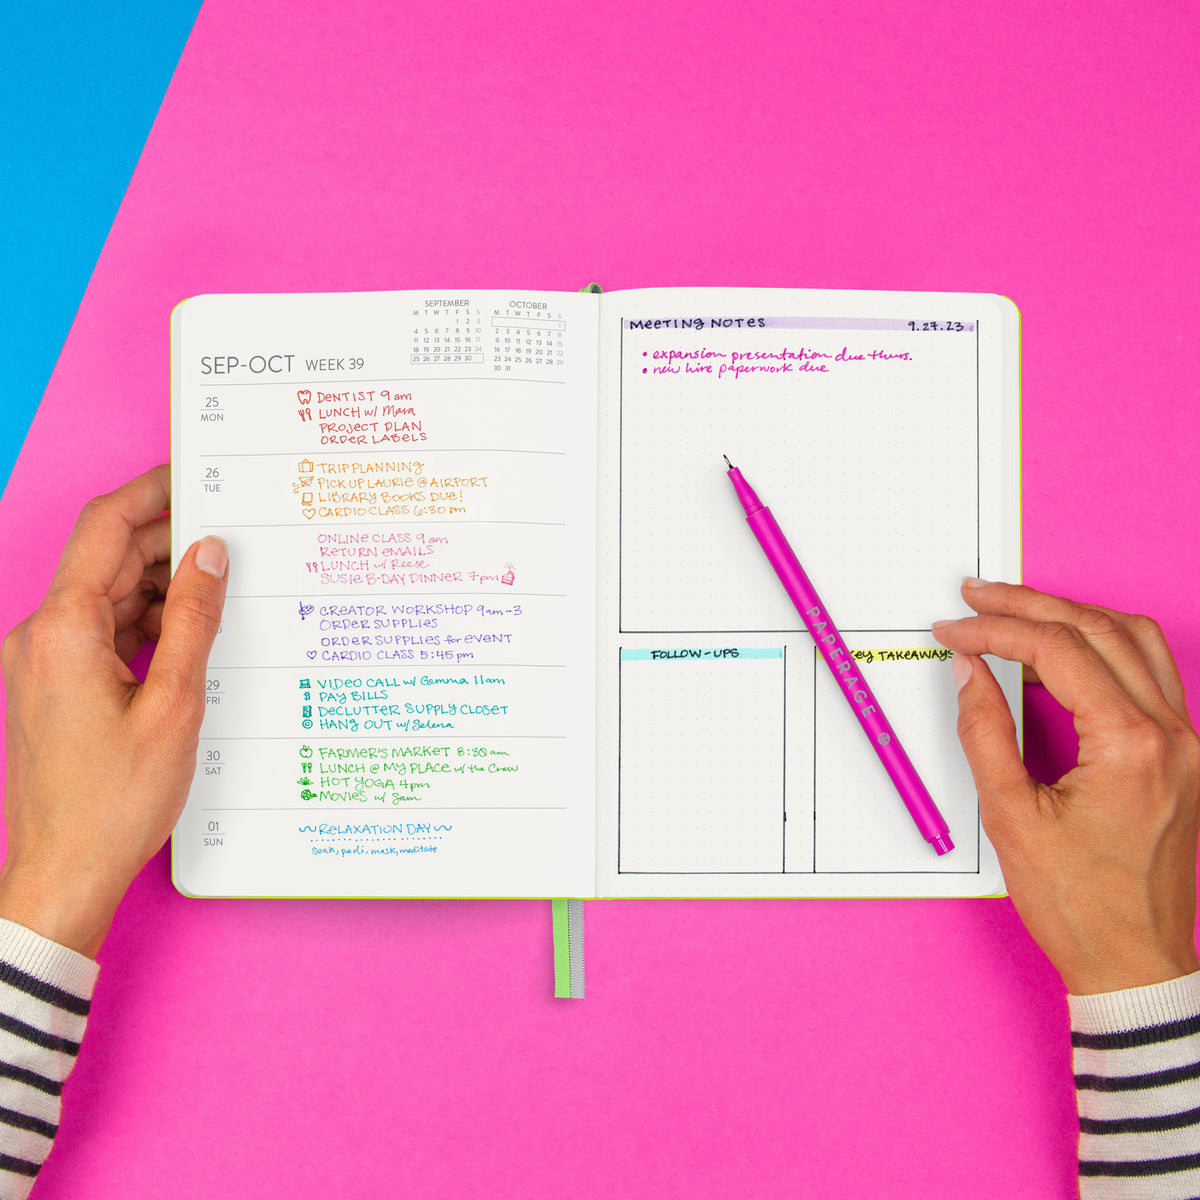 SEPTEMBER
M T W T F S S
1 2 3
4 5 6 7 8 9 10
11 12 13 14 15 16 17
18 19 20 21 22 23 24
25 26 27 28 29 30
OCTOBER
M T W T F S S
1
2 3 4 5 6 7 8
9 10 11 12 13 14 15
16 17 18 19 20 21 22
23 24 25 26 27 28 29
30 31
SEP-OCT WEEK 39
25
MON
DENTIST 9 am
LUNCH w/ Mara
PROJECT PLAN
ORDER LABELS
26
TUE
TRIP PLANNING
PICK UP LAURIE @ AIRPORT
LIBRARY BOOKS DUE!
CARDIO CLASS 6:30 pm
ONLINE CLASS 9am
RETURN EMAILS
LUNCH w/ Reese
SUSIE B-DAY DINNER 7pm
CREATOR WORKSHOP 9am-3
ORDER SUPPLIES
ORDER SUPPLIES for EVENT
CARDIO CLASS 5:45 pm
29
FRI
VIDEO CALL w/ Gemma 11am
$ PAY BILLS
DECLUTTER SUPPLY CLOSET
HANG OUT w/ Selena
30
SAT
FARMER'S MARKET 8:30 am
LUNCH @ MY PLACE w/ the Crew
HOT YOGA 4pm
MOVIES w/ Sam
01
SUN
~RELAXATION DAY~
Soak, pedi, mask, meditate
MEETING NOTES 9.27.23
• expansion presentation due thurs.
• new hire paperwork due
FOLLOW-UPS
KEY TAKEAWAYS
PAPERAGE